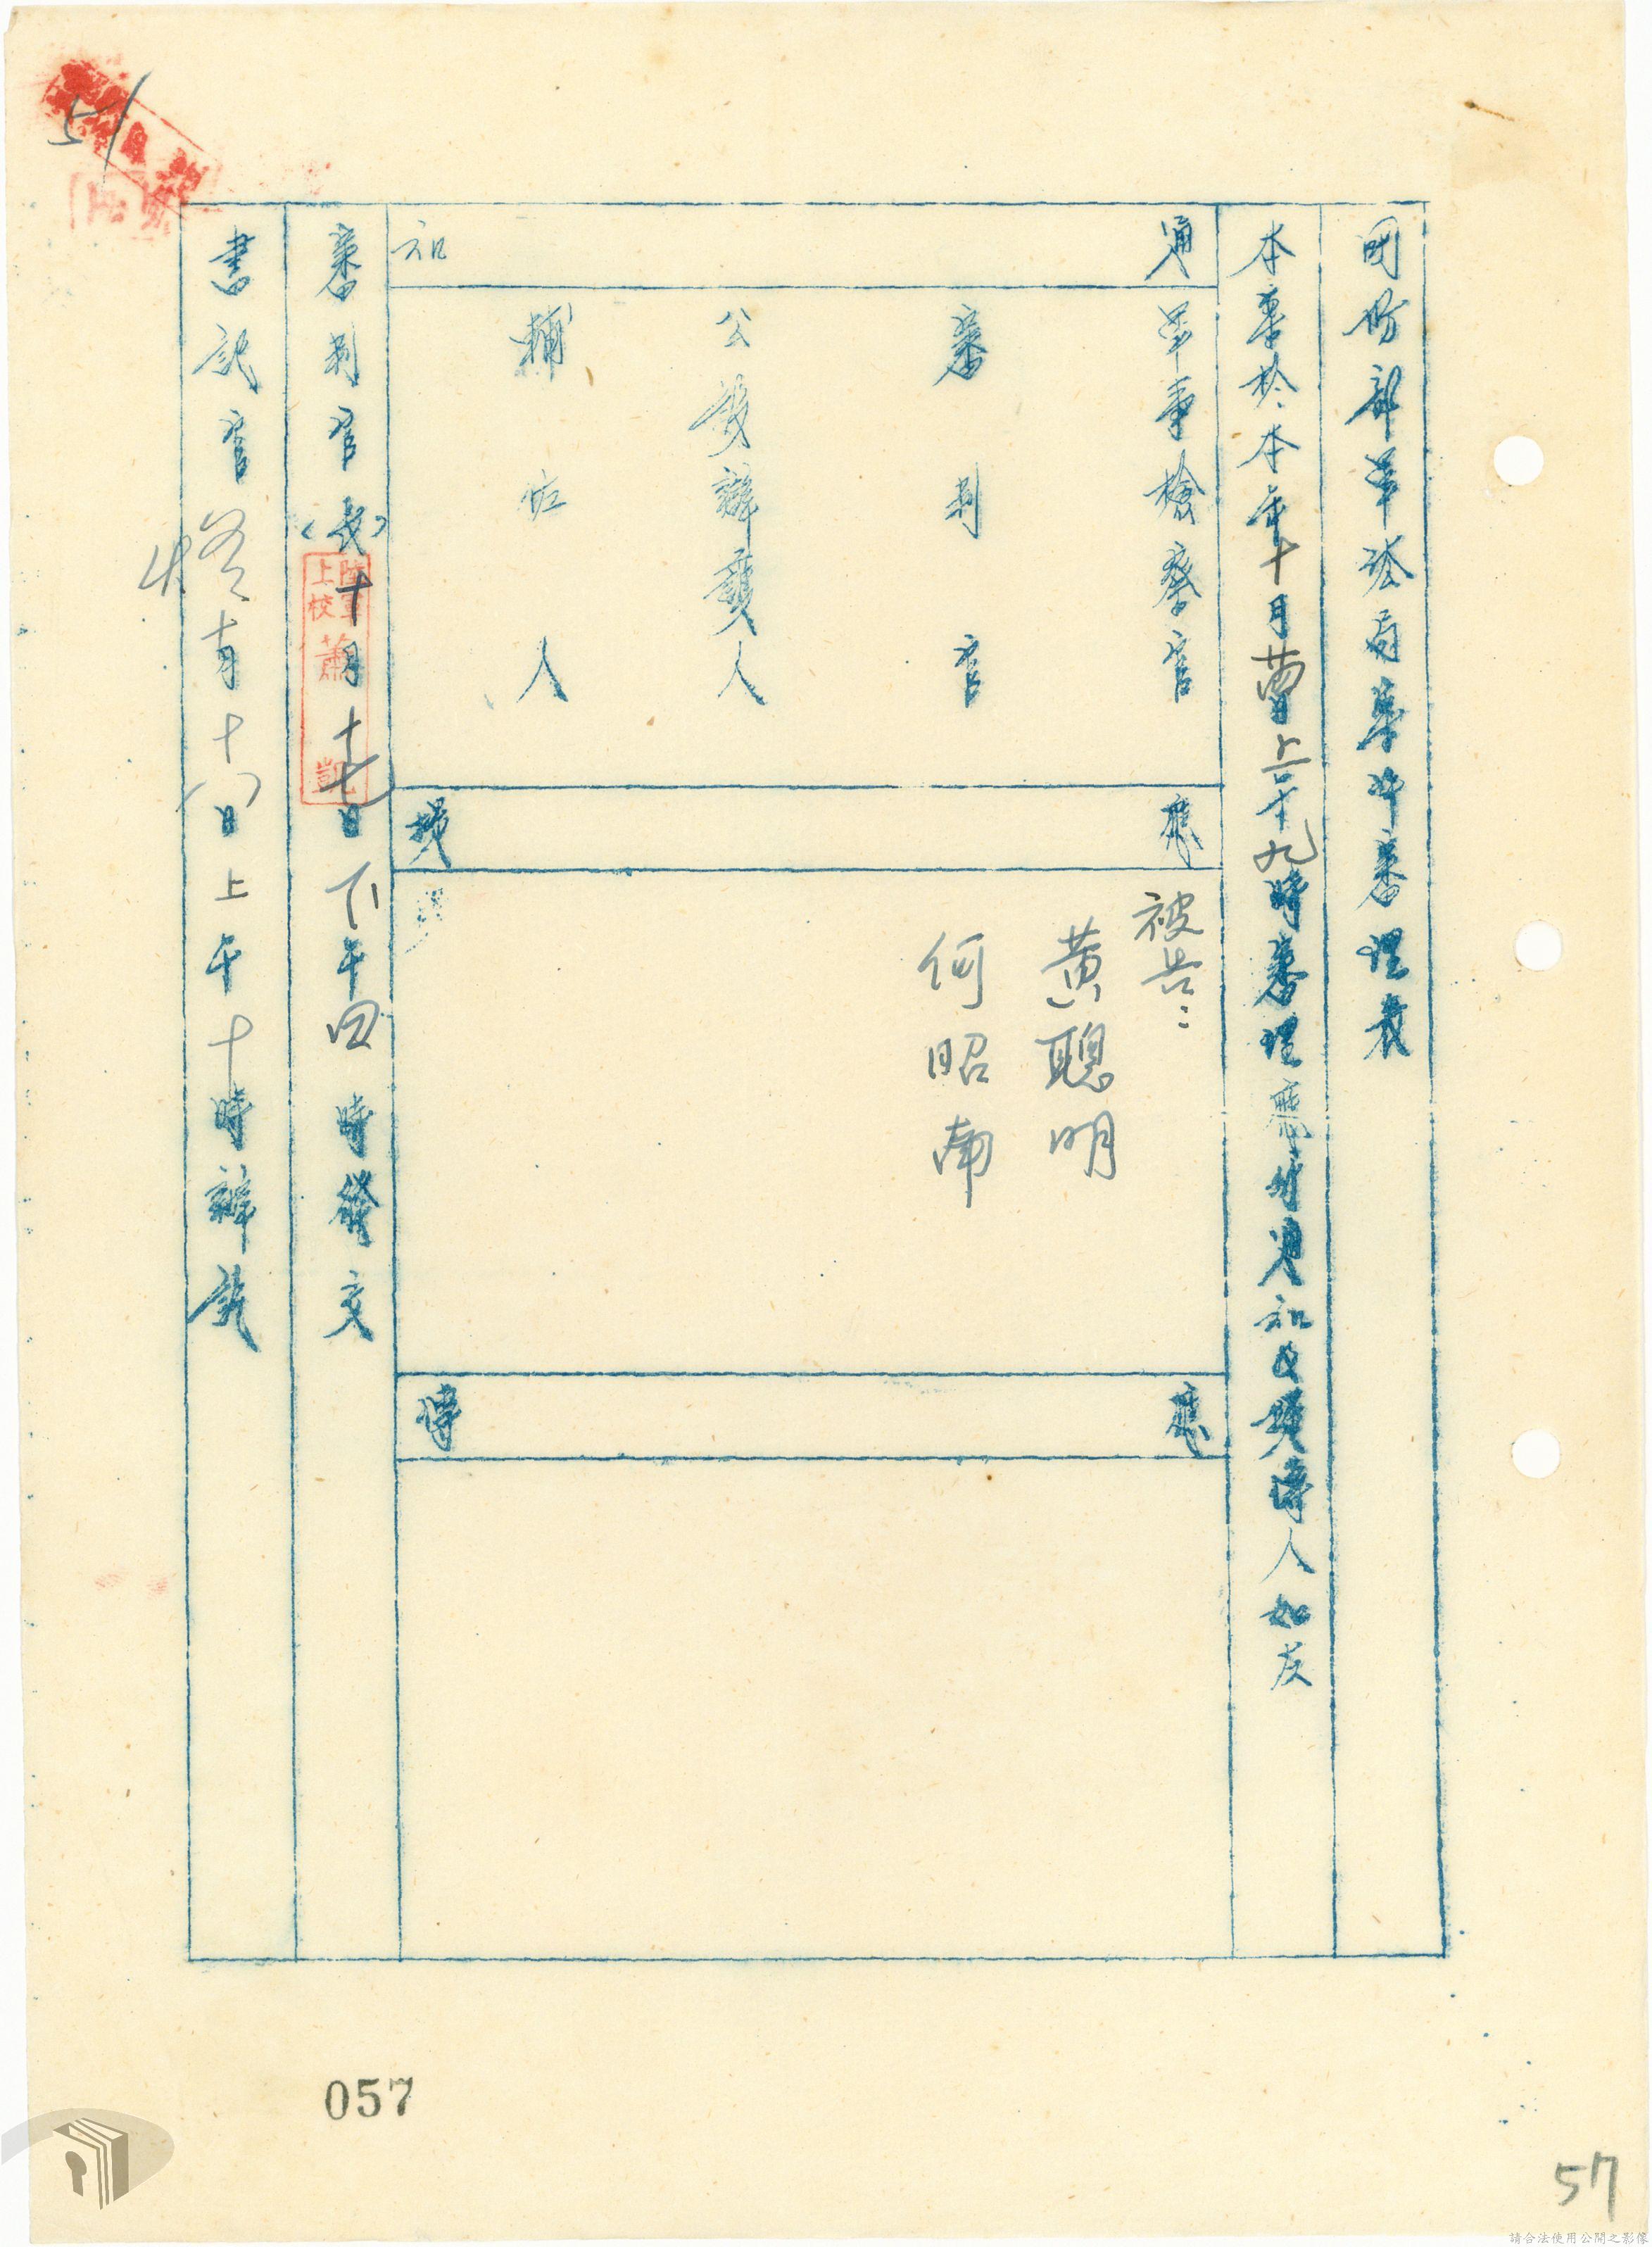 國防部軍法局案件審理表
本案於本年十月廿日上午九時審理應行通知及提傳人如左
通知
軍事檢察官
審判官
公設辯護人
輔佐人
應提
被告:
黃聰明
何昭南
應傳
審判官(長)十月十七日下午四時發交
陸軍上校
蕭凱
書記官 十月十八日上午十時辦訖
51
057
57
請合法使用公開之影像